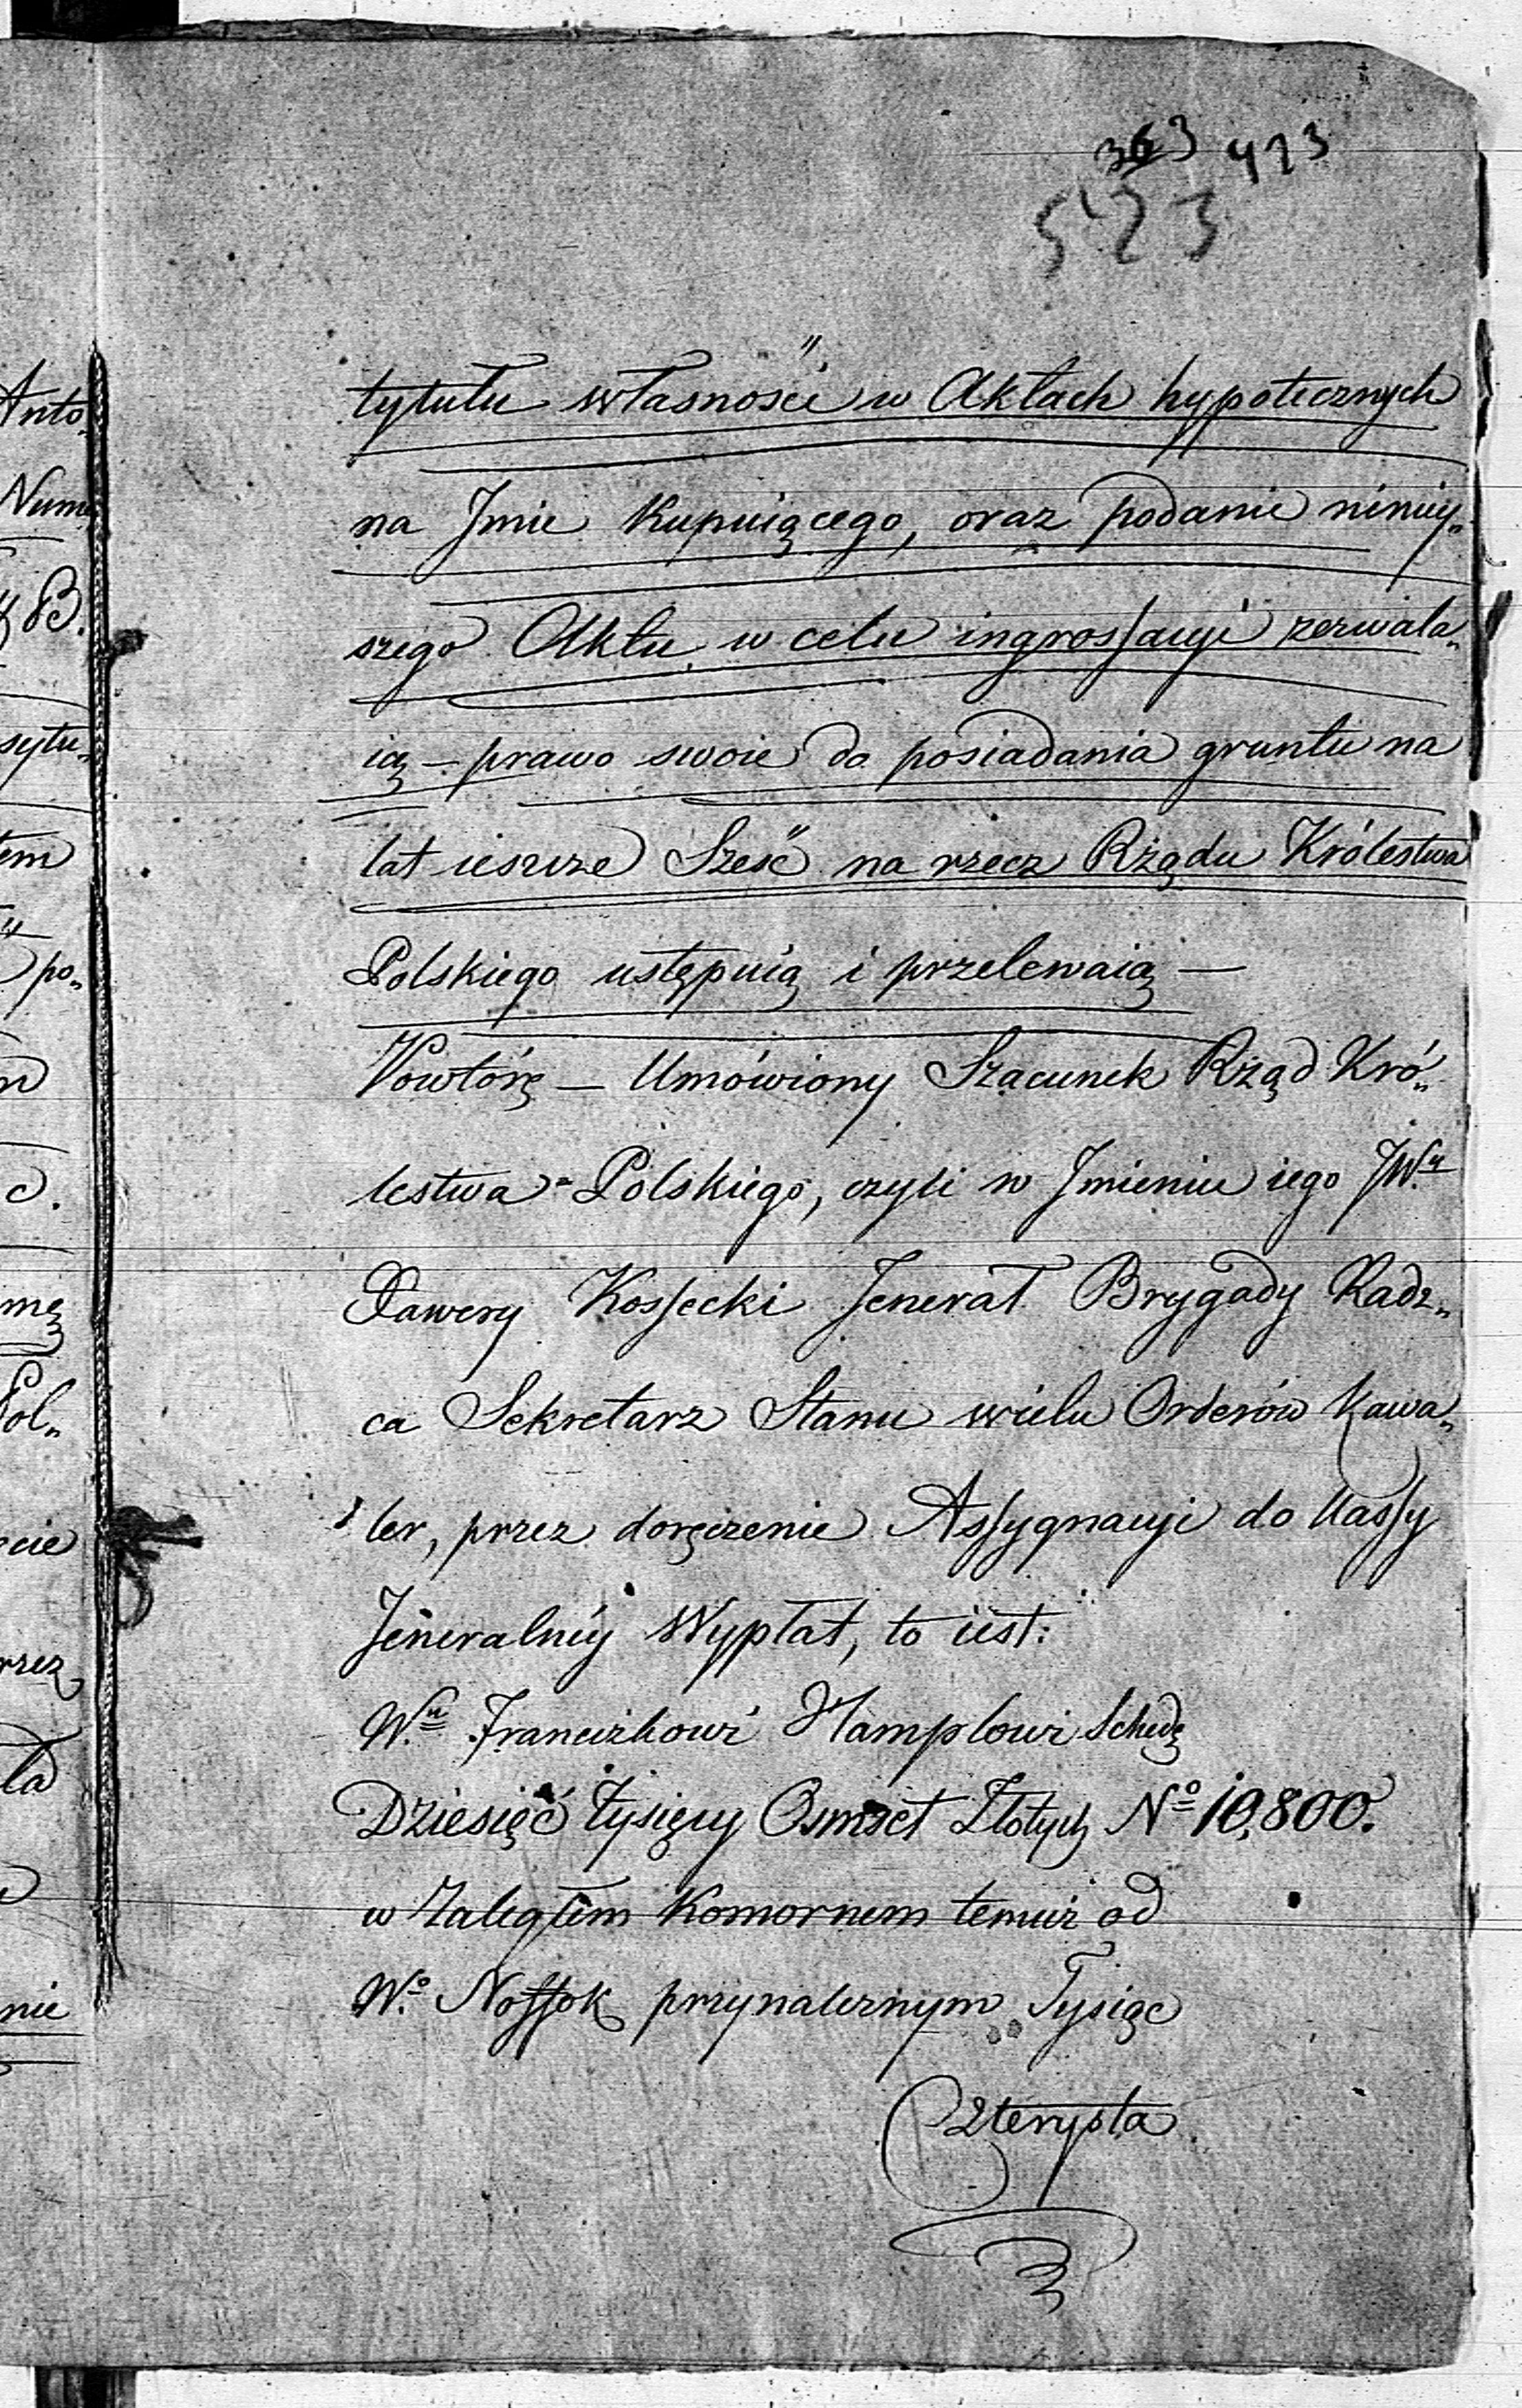 363 413
523
Anto„
tytułu własności w Aktach hypotecznych
Num
na Jmie Kupuiącego, oraz podanie niniey„
B.
szego Aktu w celu ingrossacyi zezwala„
sytu„
ią — prawo swoie do posiadania gruntu na
tem
lat ieszcze Sześć na rzecz Rządu Królestwa
po„
Polskiego ustępuią i przelewaią —
Powtórę — Umówiony Szacunek Rząd Kró„
lestwa Polskiego, czyli w Jmieniu iego JW.y
Xawery Kossecki Jenerał Brygady Radz„
Pol„
ca Sekretarz Stanu wielu Orderów Kawa„
cie
ler, przez doręczenie Assygnacyi do Kassy
Jeneralney Wypłat, to iest:
rzez
W.u Franciszkowi Hamplowi Schedę
Dziesięć tysięcy Osmset Złotych No 10,800.
w Zaległem Komornem temuż od
W.o Nossok przynależnym Tysiąc
nie
Czterysta